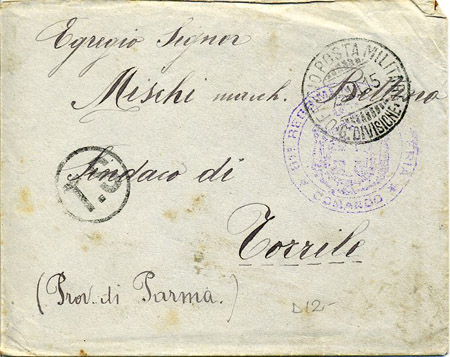 Egregio Signor
Mischi march. Bettino
Sindaco di
Torrile
(Prov. di Parma.)
POSTA MILITARE
15
DIVISIONE
T.S
COMANDO